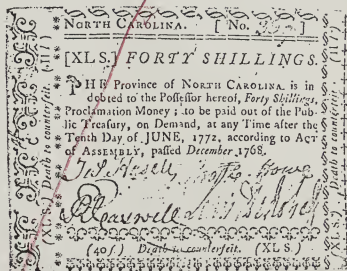 NORTH CAROLINA. [ No. ]
[XLS.] FORTY SHILLINGS.
THE Province of NORTH CAROLINA is in
debted to the Possessor hereof, Forty Shillings,
Proclamation Money; to be paid out of the Pub-
lic Treasury, on Demand, at any Time after the
Tenth Day of JUNE, 1772, according to ACT
of ASSEMBLY, passed December 1768.
(XLS.) Death to counterfeit. (XLS.)
(40s.) Death to counterfeit. (XLS.)
(XLS.) Death to counterfeit.